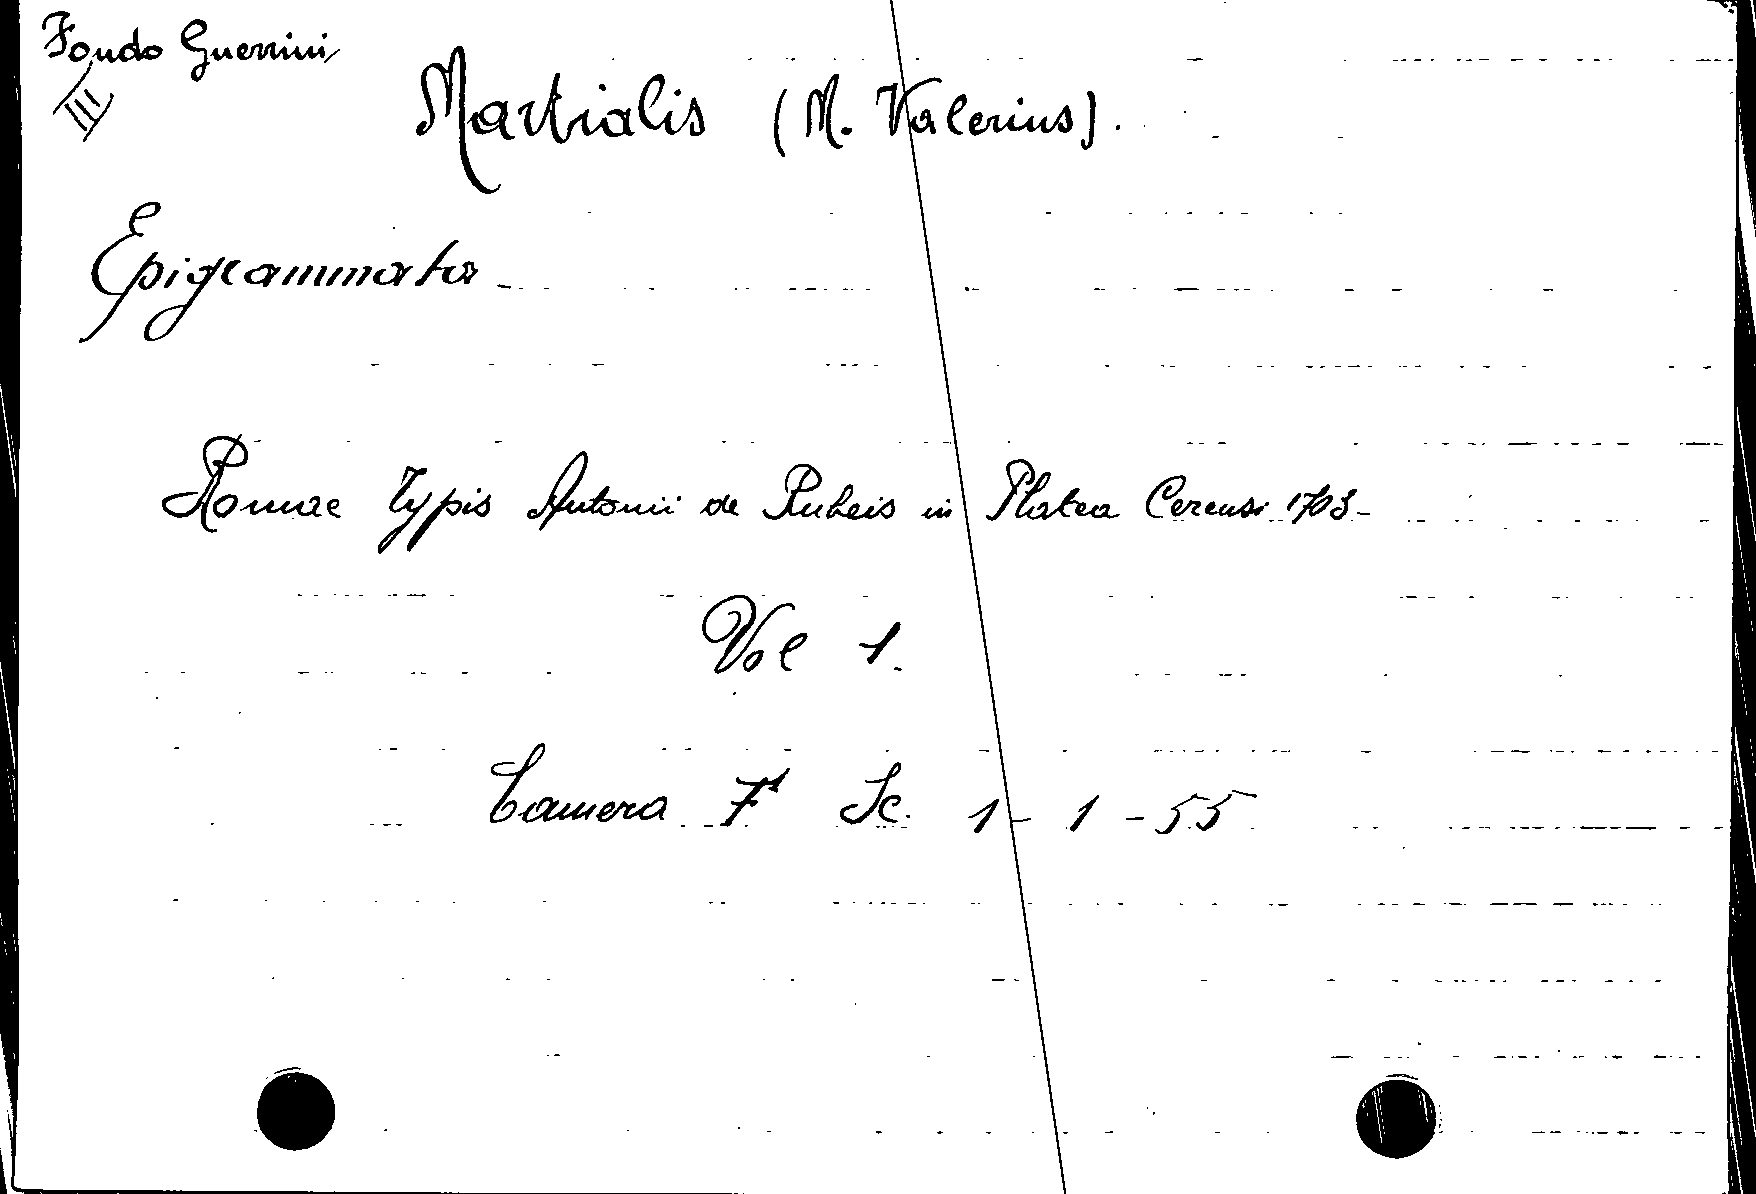 Fondo Guerrini
III
Martialis (M. Valerius).
Epigrammata
Romae Typis Antonii de Rubeis in Platea Cerensi 1703
Vol 1.
Camera Fª Sc. 1 - 1 - 55